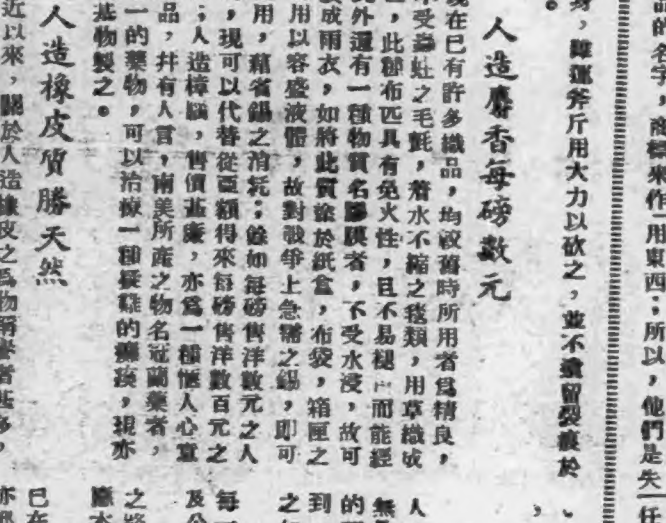 品的名字,商標來作用東西;所以,他們是失
身,縱運斧斤用大力以砍之,並不遺留裂痕於
。
人造麝香每磅數元
現在已有許多織品,均較舊時所用者爲精良,
不受蟲蛀之毛氈,着水不縮之毯類,用草織成
,此種布匹具有免火性,且不易褪 而能經
此外還有一種物質名膠膜者,不受水浸,故可
成雨衣,如將此質塗於紙盒,布袋,箱匣之
用以容盛液體,故對戰爭上急需之錫,即可
用,藉省錫之消耗;餘如每磅售洋數元之人
,現可以代替從 得來每磅售洋數百元之
;人造樟腦,售價甚廉,亦爲一種愜人心意
品,幷有人言,南美所產之物名冠蘭藥者,
一的藥物,可以治療一種疑難的 ,現亦
基物製之。
人造橡皮質勝天然
近以來,關於人造橡皮之爲物稱譽者甚多,
仟
人
無
的
到
之
每
及
之
已在